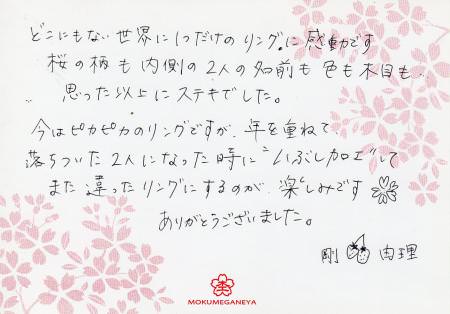 どこにもない世界に1つだけのリングに感動です
桜の柄も内側の2人の名前も色も木目も..
思った以上にステキでした。
今はピカピカのリングですが、年を重ねて、
落ちついた2人になった時に"いぶし加工"して
また違ったリングにするのが、楽しみです
ありがとうございました。
剛 由理
MOKUMEGANEYA